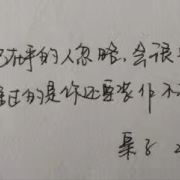 己在乎的人忽略，会很
过的是你还要装作不